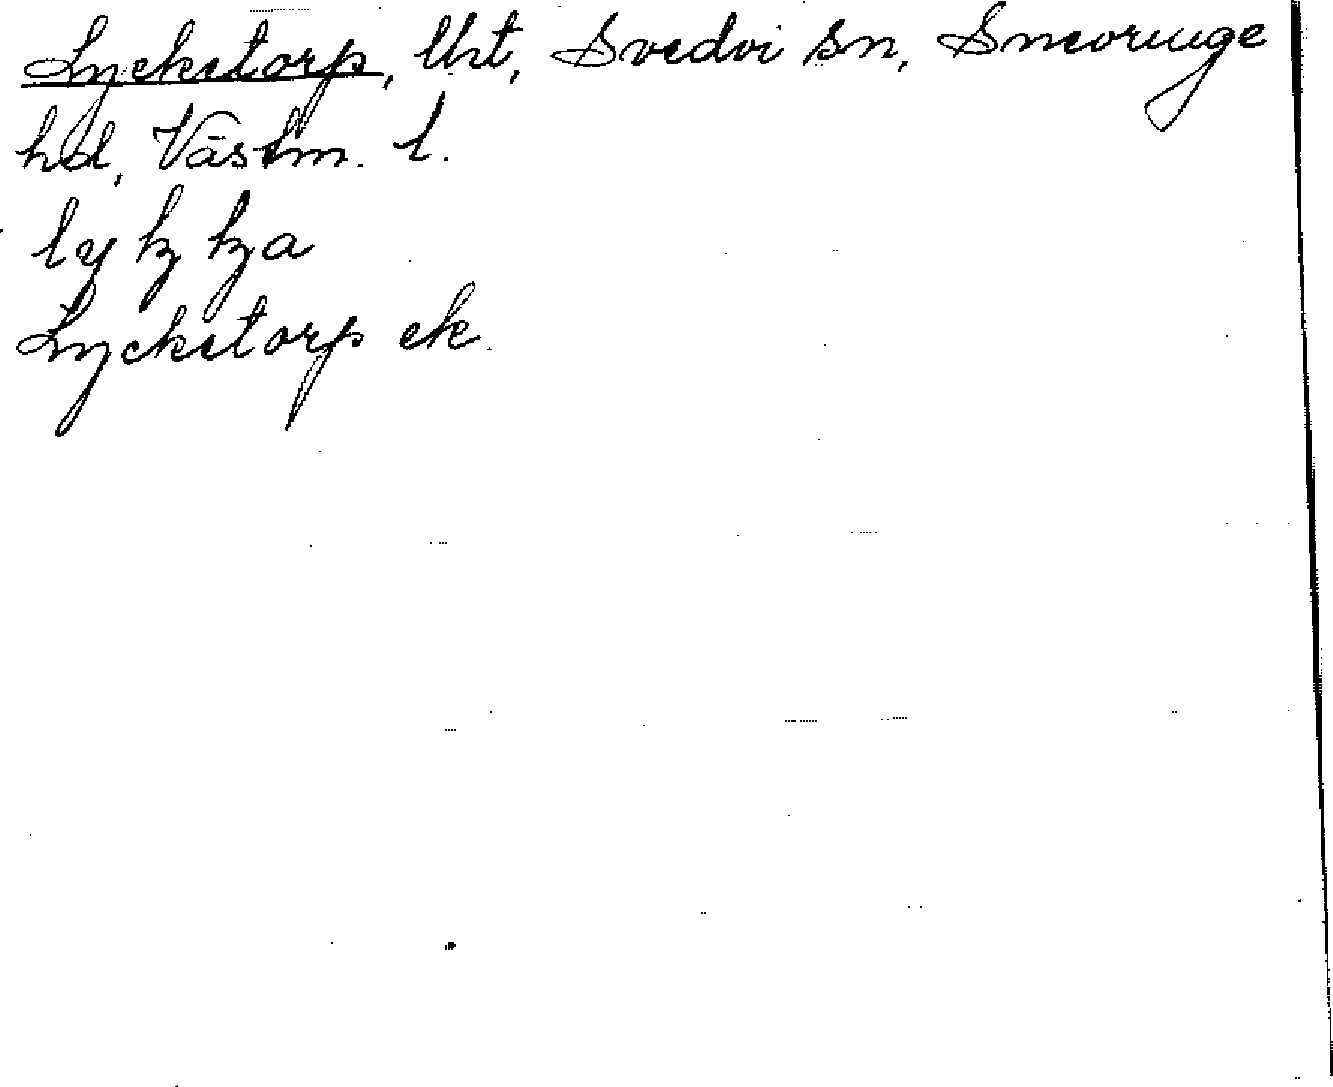 Lyckstorp, lht, Svedvi sn, Snevringe
hd, Västm. l.
Lyckstorp ek